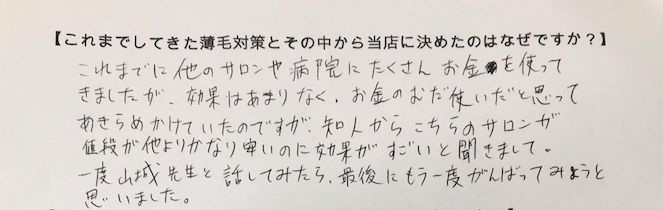 【これまでしてきた薄毛対策とその中から当店に決めたのはなぜですか？】
これまでに他のサロンや病院にたくさんお金を使って
きましたが、効果はあまりなく、お金のむだ使いだと思って
あきらめかけていたのですが、知人からこちらのサロンが
値段が他よりかなり安いのに効果がすごいと聞きまして。
一度山城先生と話してみたら、最後にもう一度がんばってみようと
思いました。